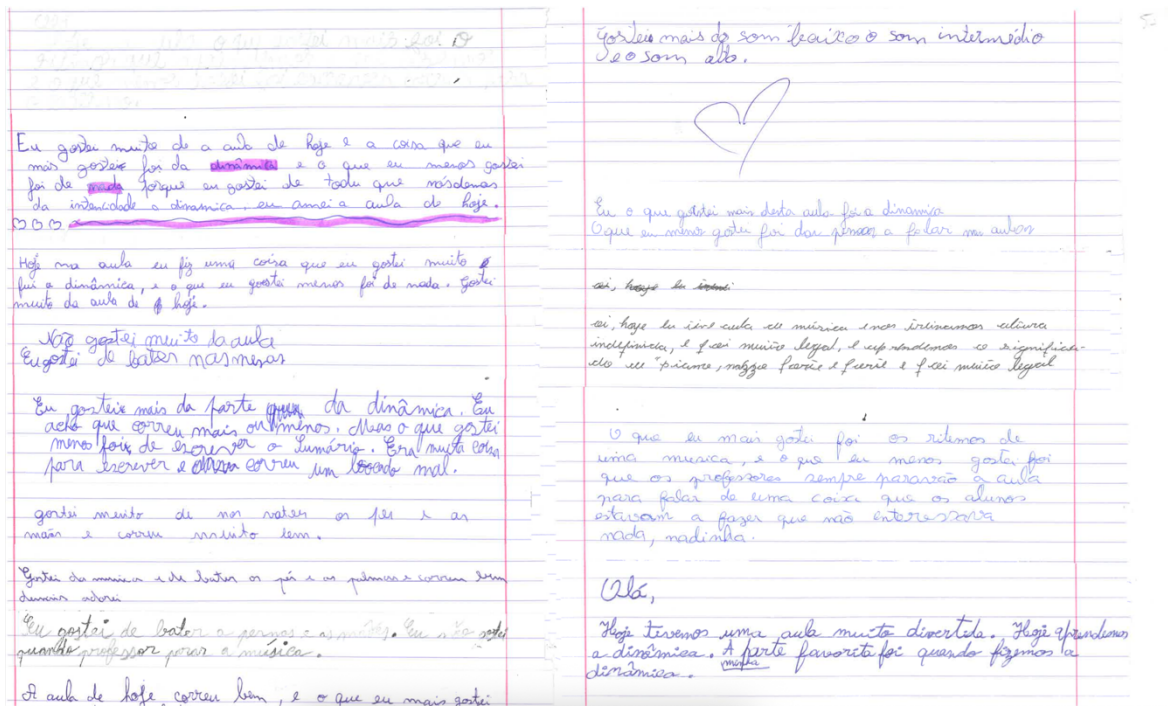 foi o
Eu gostei muito de a aula de hoje e a coisa que eu
mais gostei foi da dinâmica e o que eu menos gostei
foi de nada porque eu gostei de tudu que nósdemos
da intencidade a dinamica, eu amei a aula de hoje.
Hoje na aula eu fiz uma coisa que eu gostei muito
foi a dinâmica, e o que eu gostei menos foi de nada. Gostei
muito da aula de hoje.
Não gostei muito da aula
Eu gostei de bater nas mesas
Eu gostei mais da parte da dinâmica. Eu
acho que correu mais ou menos. Mas o que gostei
menos foi de escrever o Sumário. Era muita coisa
para escrever e correu um bocado mal.
gostei muito de nos bater os pés e as
mãos e correu muito bem.
Gostei da musica e de bater os pés e as palmas e correu bem
demais adorei
Eu gostei de bater a pernas e as mãos. Eu não gostei
quando professor parar a música.
A aula de hoje correu bem, e o que eu mais gostei
Gostei mais do som baixo o som intermédio
e o som alto.
Eu o que gostei mais desta aula foi a dinamica
O que eu menos gostei foi das pessoas a falar na aula
oi, hoje eu
oi, hoje eu tive aula de música e nos treinamos altura
indefinida, e foi muito legal, e aprendemos o significa-
do de "piano, mezzo forte e forte e foi muito legal
O que eu mais gostei foi os ritmos de
uma musica, e o que eu menos gostei foi
que os professores sempre paravão a aula
para falar de uma coisa que os alunos
estavam a fazer que não enteressava
nada, nadinha.
Olá,
Hoje tivemos uma aula muito divertida. Hoje aprendemos
a dinâmica. A minha parte favorita foi quando fizemos a
dinâmica.